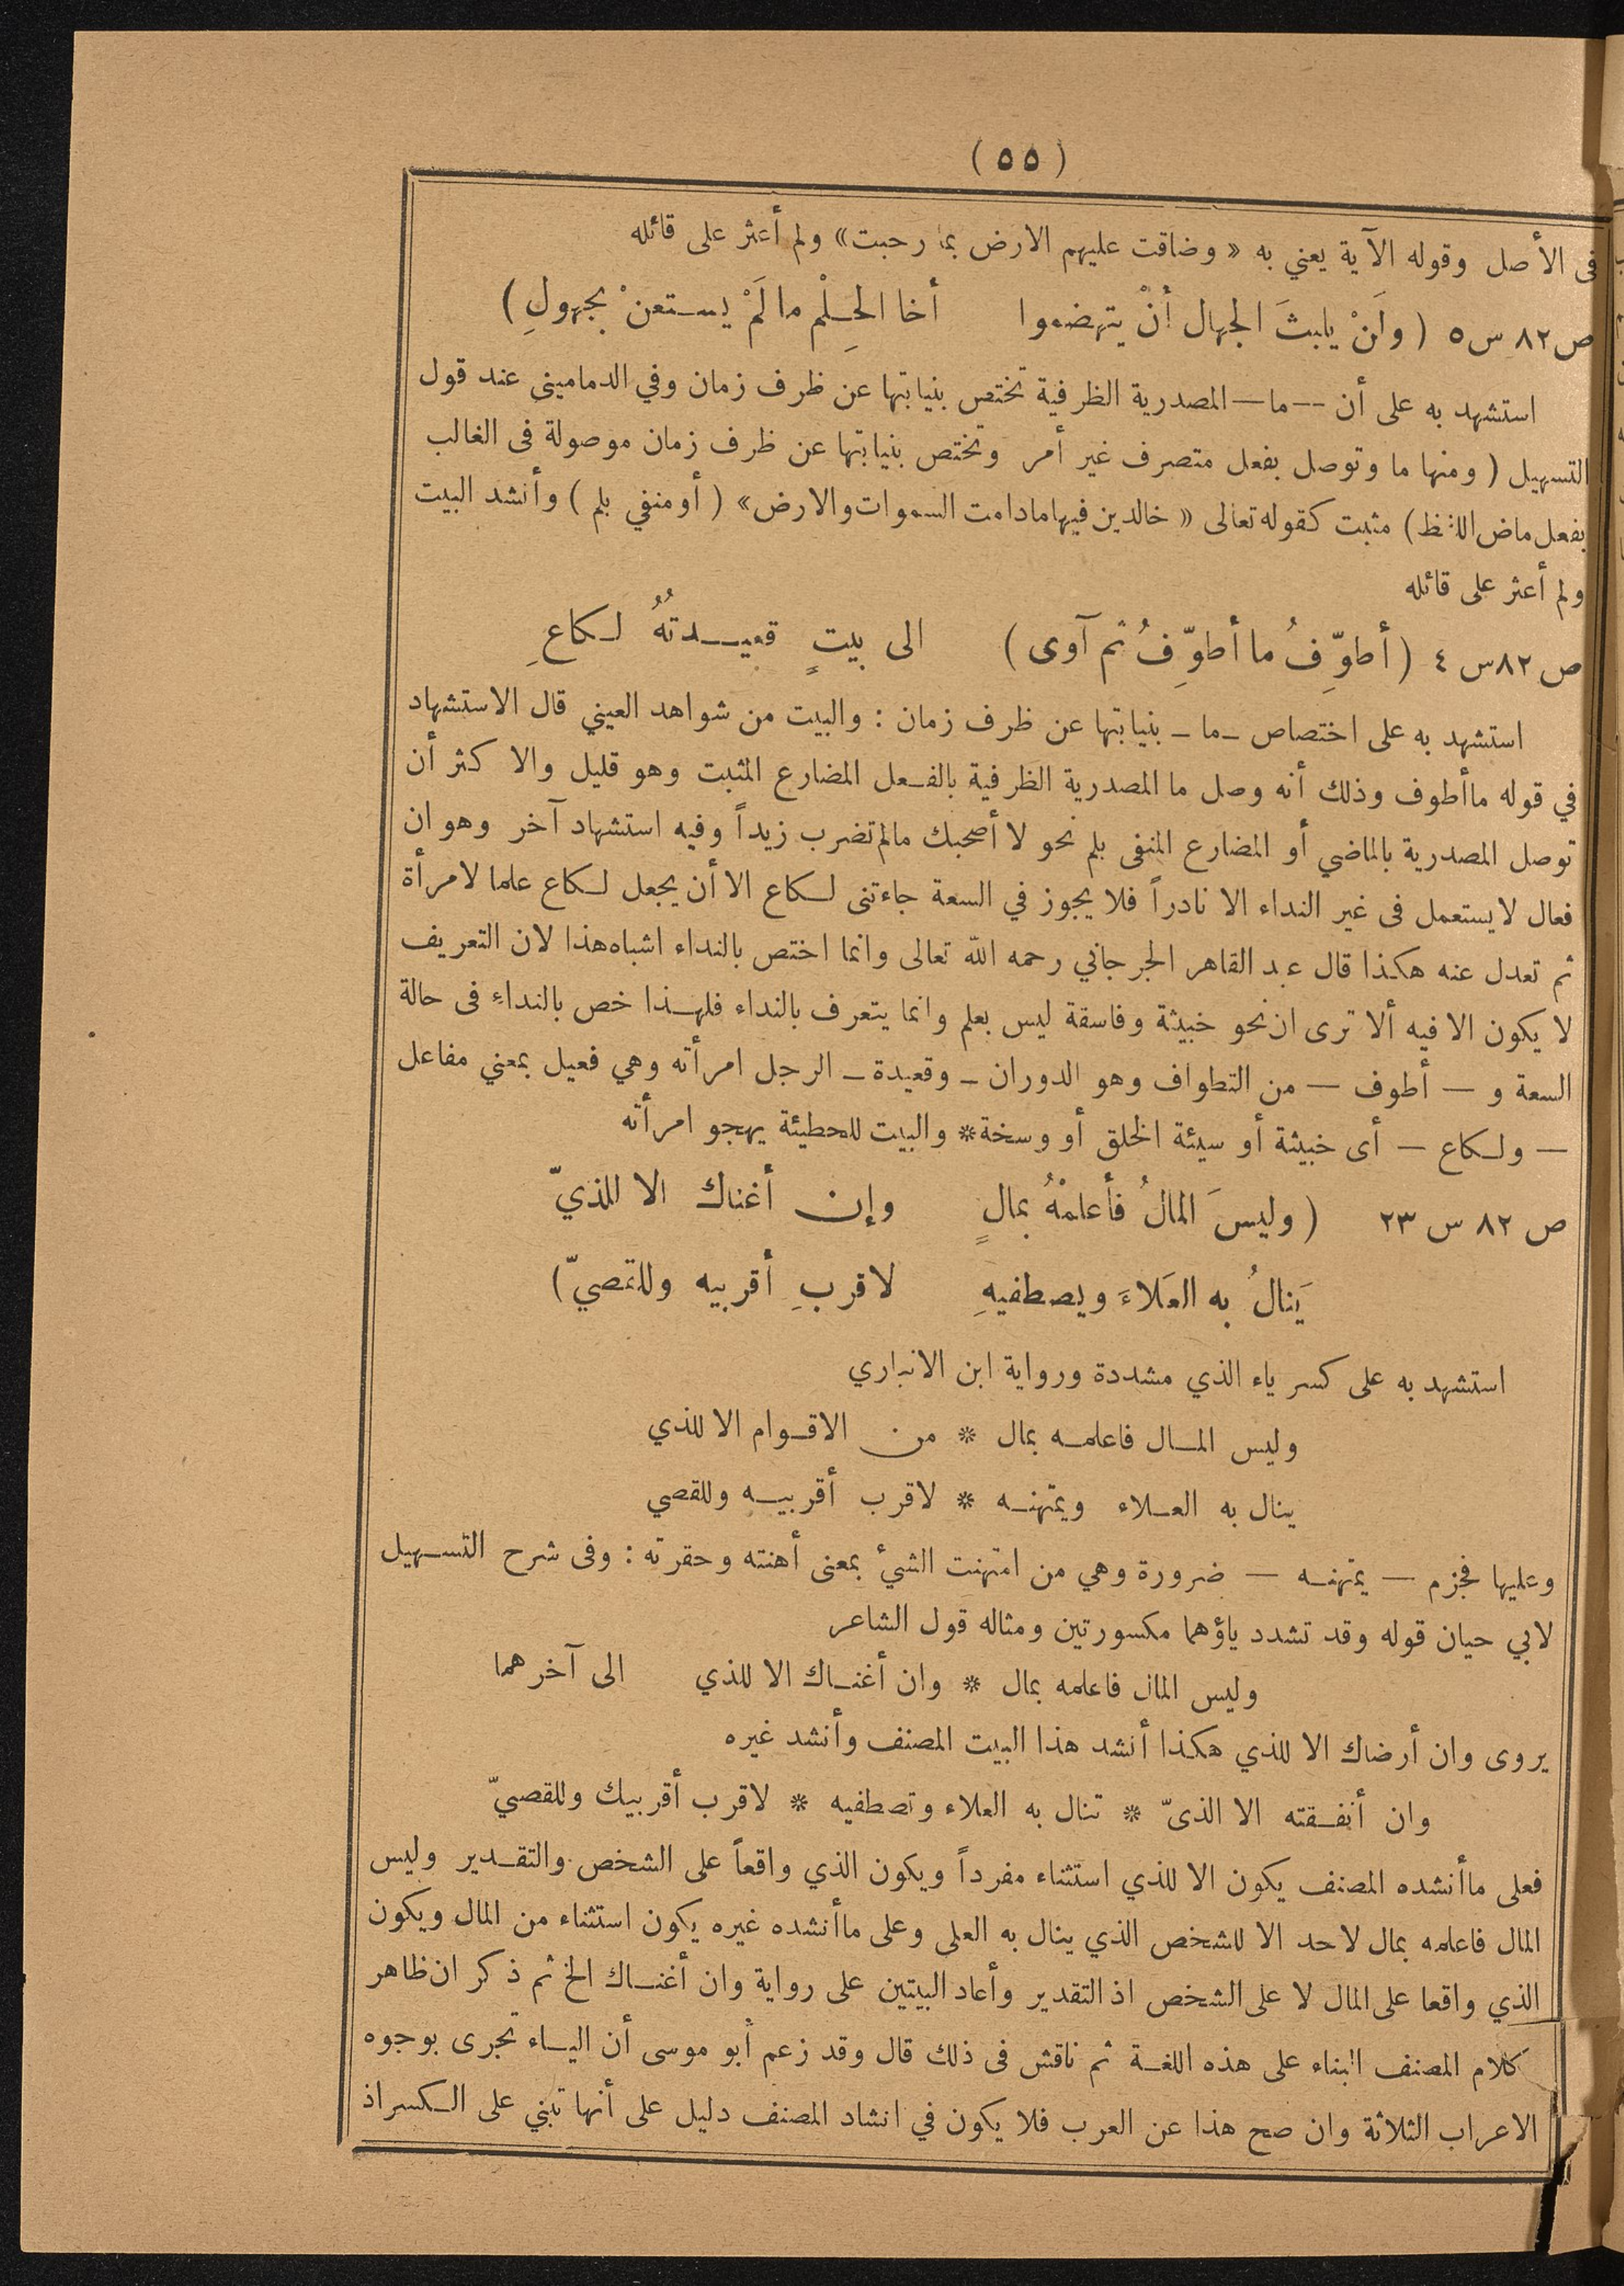 ( ٥٥ )
فى الأصل وقوله الآية يعني به « وضاقت عليهم الارض بما رحبت» ولم أعثر على قائله
ص ٨٢ س ٥ ( ولَنْ يلبثَ الجهال أنْ يتهضموا أخا الحِلْم ما لَمْ يستعنْ بجهولِ )
استشهد به على أن — ما — المصدرية الظرفية تختص بنيابتها عن ظرف زمان وفي الدماميني عند قول
التسهيل ( ومنها ما وتوصل بفعل متصرف غير أمر وتختص بنيابتها عن ظرف زمان موصولة فى الغالب
بفعل ماض اللفظ ) مثبت كقوله تعالى « خالدين فيها مادامت السموات والارض» ( أو منفي بلم ) وأنشد البيت
ولم أعثر على قائله
ص ٨٢ س ٤ ( أطوِّفُ ما أطوِّفُ ثم آوى ) الى بيتٍ قعيدتُهُ لكاعِ
استشهد به على اختصاص — ما — بنيابتها عن ظرف زمان : والبيت من شواهد العيني قال الاستشهاد
في قوله ماأطوف وذلك أنه وصل ما المصدرية الظرفية بالفعل المضارع المثبت وهو قليل والا كثر أن
توصل المصدرية بالماضي أو المضارع المنفى بلم نحو لا أصحبك مالم تضرب زيداً وفيه استشهاد آخر وهو ان
فعال لايستعمل فى غير النداء الا نادراً فلا يجوز في السعة جاءتنى لكاع الا أن يجعل لكاع علما لامرأة
ثم تعدل عنه هكذا قال عبد القاهر الجرجاني رحمه الله تعالى وانما اختص بالنداء اشباه هذا لان التعريف
لا يكون الا فيه ألا ترى ان نحو خبيثة وفاسقة ليس بعلم وانما يتعرف بالنداء فلهذا خص بالنداء فى حالة
السعة و — أطوف — من التطواف وهو الدوران — وقعيدة — الرجل امرأته وهي فعيل بمعني مفاعل
— ولكاع — أى خبيثة أو سيئة الخلق أو وسخة * والبيت للحطيئة يهجو امرأته
ص ٨٢ س ٢٣ ( وليسَ المالُ فأعلمْهُ بمالٍ وإن أغناك الا للذيّ
يَنالُ به العَلاءَ ويصطفيهِ لاقربِ أقربيه وللقصيّ )
استشهد به على كسر ياء الذي مشددة ورواية ابن الانباري
وليس المال فاعلمه بمال * من الاقوام الا للذي
ينال به العلاء ويمتهنه * لاقرب أقربيه وللقصي
وعليها فجزم — يمتهنه — ضرورة وهي من امتهنت الشيء بمعنى أهنته وحقرته : وفى شرح التسهيل
لابي حيان قوله وقد تشدد ياؤهما مكسورتين ومثاله قول الشاعر
وليس المال فاعلمه بمال * وان أغناك الا للذي الى آخرهما
يروى وان أرضاك الا للذي هكذا أنشد هذا البيت المصنف وأنشد غيره
وان أنفقته الا الذىّ * تنال به العلاء وتصطفيه * لاقرب أقربيك وللقصيّ
فعلى ماأنشده المصنف يكون الا للذي استثناء مفرداً ويكون الذي واقعاً على الشخص والتقدير وليس
المال فاعلمه بمال لاحد الا للشخص الذي ينال به العلى وعلى ماأنشده غيره يكون استثناء من المال ويكون
الذي واقعا على المال لا على الشخص اذ التقدير وأعاد البيتين على رواية وان أغناك الخ ثم ذكر ان ظاهر
كلام المصنف البناء على هذه اللغة ثم ناقش فى ذلك قال وقد زعم أبو موسى أن الياء تجرى بوجوه
الاعراب الثلاثة وان صح هذا عن العرب فلا يكون في انشاد المصنف دليل على أنها تبني على الكسراذ